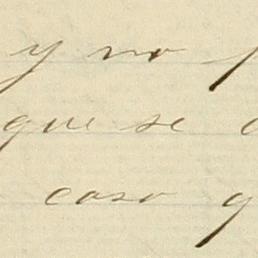 y no
que se
caso